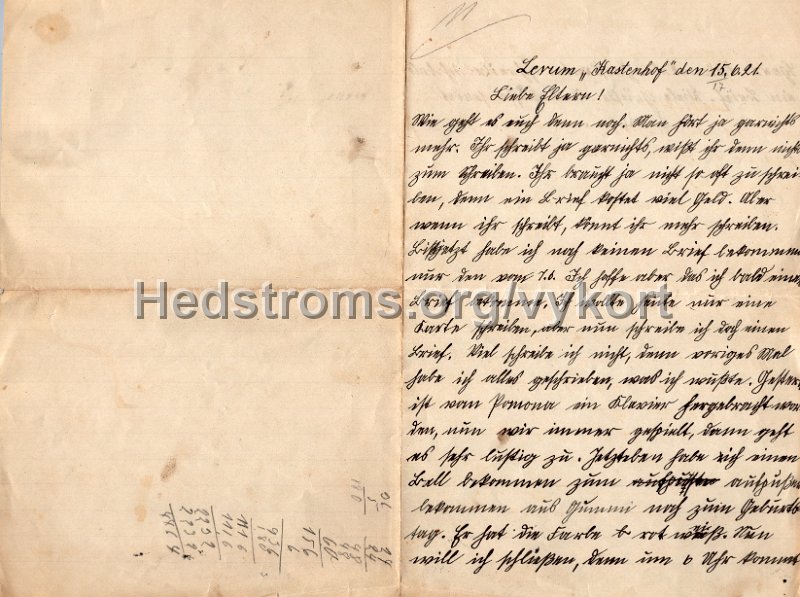 Lerum „Kastenhof“ den 15.6.21.
17
Liebe Eltern!
Wie geht es euch denn noch. Man hört ja garnichts
mehr. Ihr schreibt ja garnichts, wißt ihr denn nichts
zum schreiben. Ihr braucht ja nicht so oft zu schrei-
ben, denn ein Brief kostet viel Geld. Aber
wenn ihr schreibt, könnt ihr mehr schreiben.
Bisjetzt habe ich noch keinen Brief bekommen
nur den vom 7.6. Ich hoffe aber das ich bald einen
Brief bekomme. Ich wollte heute nur eine
Karte schreiben, aber nun schreibe ich doch einen
Brief. Viel schreibe ich nicht, denn voriges Mal
habe ich alles geschrieben, was ich wußte. Gestern
ist vom Pomona ein Klavier hergebracht wor
den, nun wir immer gespielt, dann geht
es sehr lustig zu. Jetzteben habe eich einen
Ball bekommen zum aufpußten
bekommen aus Gummi noch zum Geburts
tag. Er hat die Farbe b rot weiß. Nun
will ich schließen, denn um 6 Uhr kommt
Hedstroms.org/vykort
936
156
6
1116
1116
2232
2232
4464
24
24
48